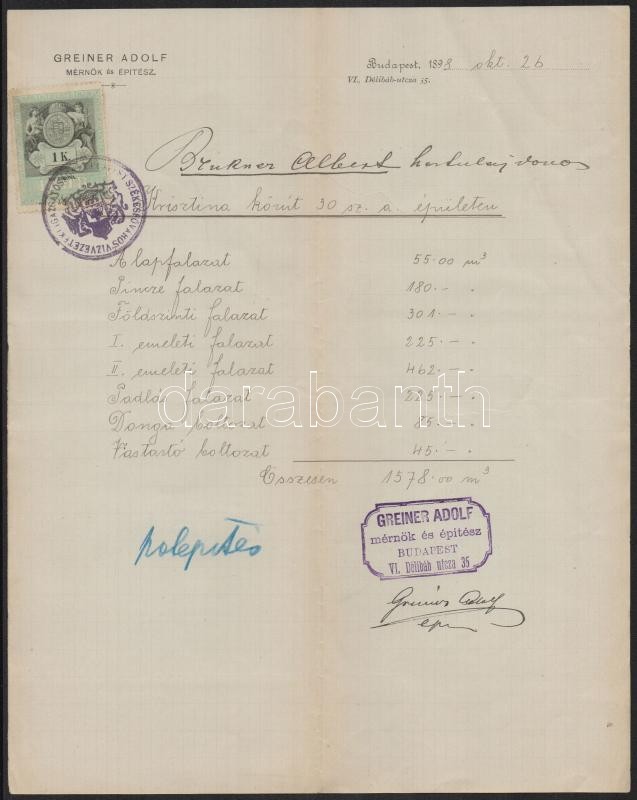 GREINER ADOLF
MÉRNÖK ÉS ÉPITÉSZ.
Budapest, 1898 okt. 26
VI., Délibáb-utcza 35.
1 K.
SZÉKESFŐVÁROSI VIZVEZETÉKI IGAZGATÓSÁG
Brukner Albert
Krisztina körút 30 sz. a. épületen
Alapfalazat 55.00 m³
Pincze falazat 180.— "
Földszinti falazat 301.— "
I. emeleti falazat 225.— "
II. emeleti falazat 462.— "
Padlás falazat 225.— "
Donga boltozat 85.— "
Vastartó boltozat 45.— "
Összesen 1578.00 m³
darabanth
GREINER ADOLF
mérnök és épitész
BUDAPEST
VI. Délibáb utcza 35
Greiner Adolf